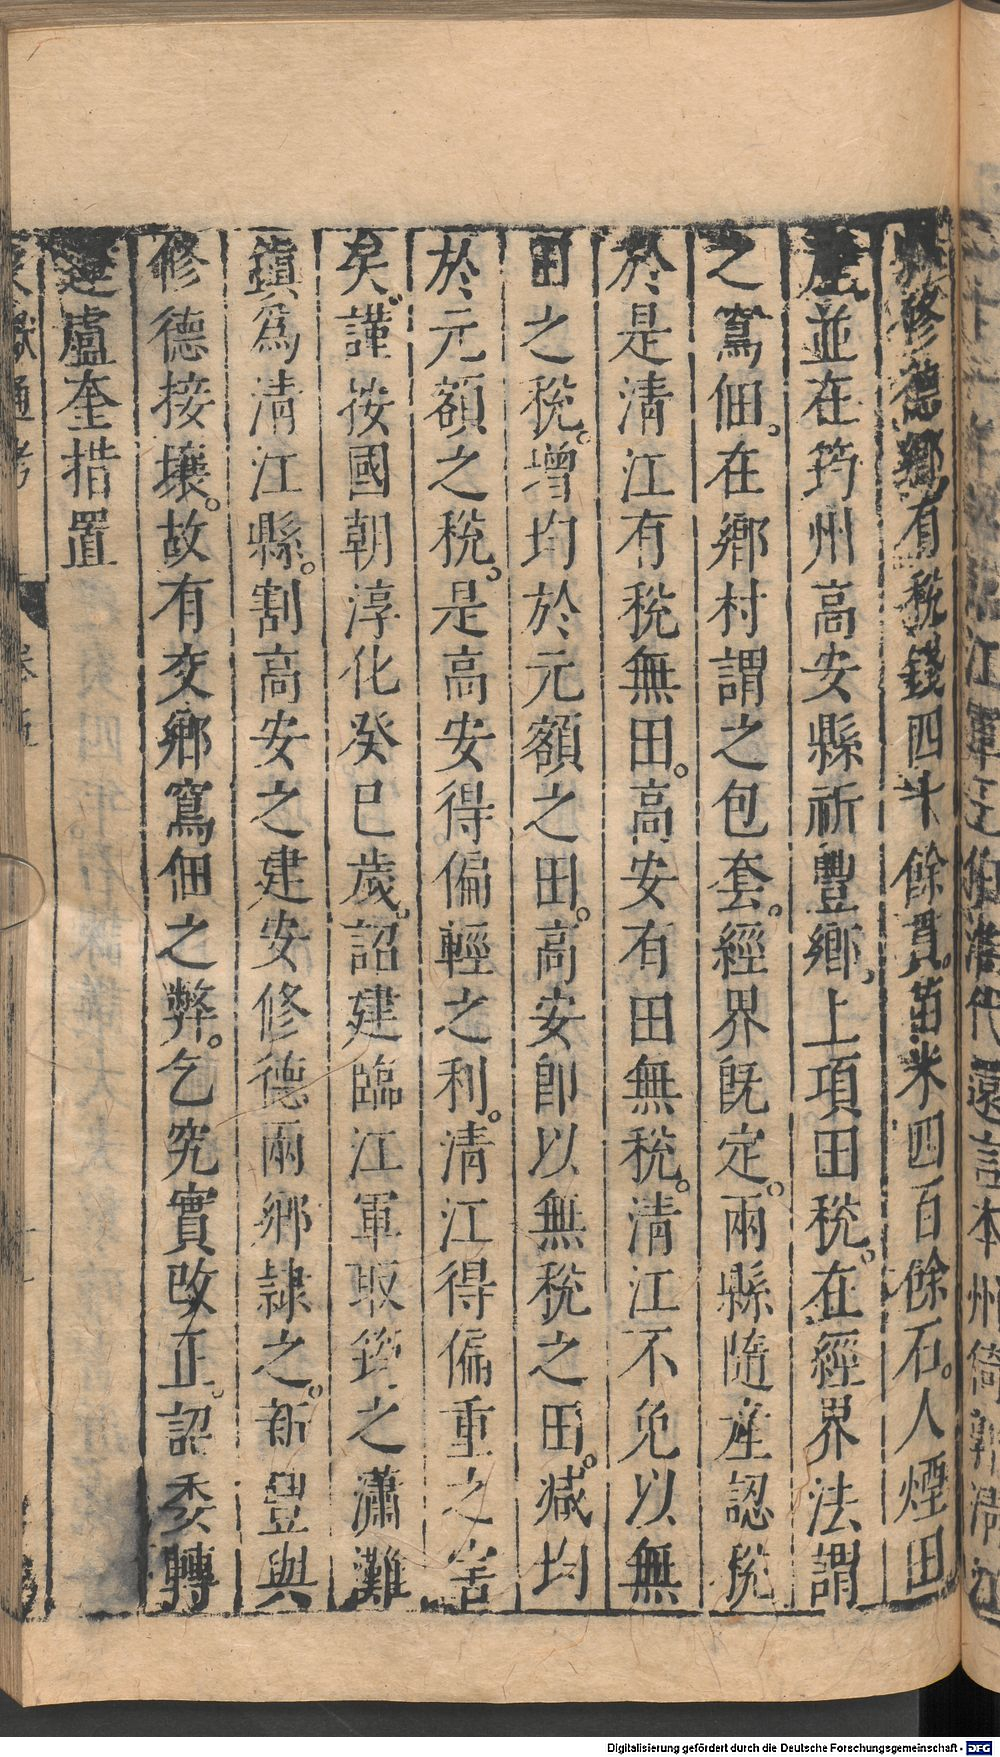 江軍王伯淮代還言本州倚郭清江
縣修德鄉有稅錢四十餘貫。苗米四百餘石。人煙田
產並在筠州高安縣祈豐鄉，上項田稅。在經界法謂
之寫佃。在鄉村謂之包套。經界旣定。兩縣隨產認稅
於是清江有稅無田。高安有田無稅。清江不免以無
田之稅。增均於元額之田。高安卽以無稅之田。减均
於元額之稅。是高安得偏輕之利。清江得偏重之害
矣。謹按國朝淳化癸巳歲。詔建臨江軍取筠之瀟灘
鎭爲清江縣。割高安之建安修德兩鄉隷之。新豊與
修德接壤。故有交鄉寫佃之弊。乞究實改正。詔委轉
運盧奎措置
獻通考
卷 五
Digitalisierung gefördert durch die Deutsche Forschungsgemeinschaft - DFG